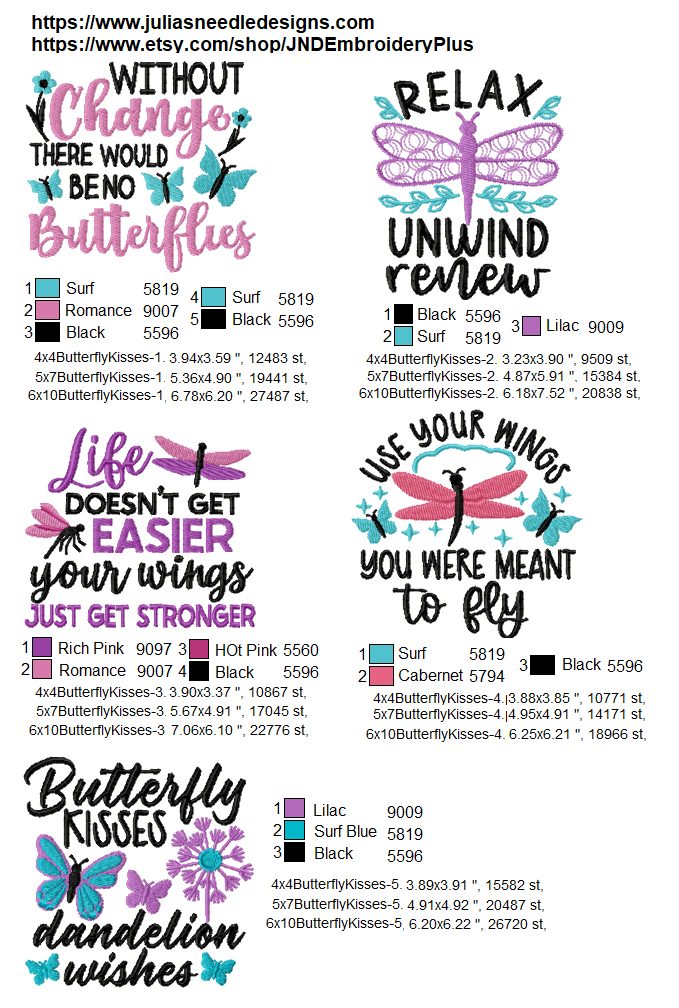 https://www.juliasneedledesigns.com
https://www.etsy.com/shop/JNDEmbroideryPlus
WITHOUT
Change
THERE WOULD
BE NO
Butterflies
1 Surf 5819
2 Romance 9007
3 Black 5596
4 Surf 5819
5 Black 5596
4x4ButterflyKisses-1. 3.94x3.59 ", 12483 st,
5x7ButterflyKisses-1. 5.36x4.90 ", 19441 st,
6x10ButterflyKisses-1, 6.78x6.20 ", 27487 st,
RELAX
UNWIND
renew
1 Black 5596
2 Surf 5819
3 Lilac 9009
4x4ButterflyKisses-2. 3.23x3.90 ", 9509 st,
5x7ButterflyKisses-2. 4.87x5.91 ", 15384 st,
6x10ButterflyKisses-2. 6.18x7.52 ", 20838 st,
Life
DOESN'T GET
EASIER
your wings
JUST GET STRONGER
1 Rich Pink 9097
2 Romance 9007
3 HOt Pink 5560
4 Black 5596
4x4ButterflyKisses-3. 3.90x3.37 ", 10867 st,
5x7ButterflyKisses-3. 5.67x4.91 ", 17045 st,
6x10ButterflyKisses-3 7.06x6.10 ", 22776 st,
USE YOUR WINGS
YOU WERE MEANT
to fly
1 Surf 5819
2 Cabernet 5794
3 Black 5596
4x4ButterflyKisses-4. 3.88x3.85 ", 10771 st,
5x7ButterflyKisses-4. 4.95x4.91 ", 14171 st,
6x10ButterflyKisses-4. 6.25x6.21 ", 18966 st,
Butterfly
KISSES
dandelion
wishes
1 Lilac 9009
2 Surf Blue 5819
3 Black 5596
4x4ButterflyKisses-5. 3.89x3.91 ", 15582 st,
5x7ButterflyKisses-5. 4.91x4.92 ", 20487 st,
6x10ButterflyKisses-5, 6.20x6.22 ", 26720 st,